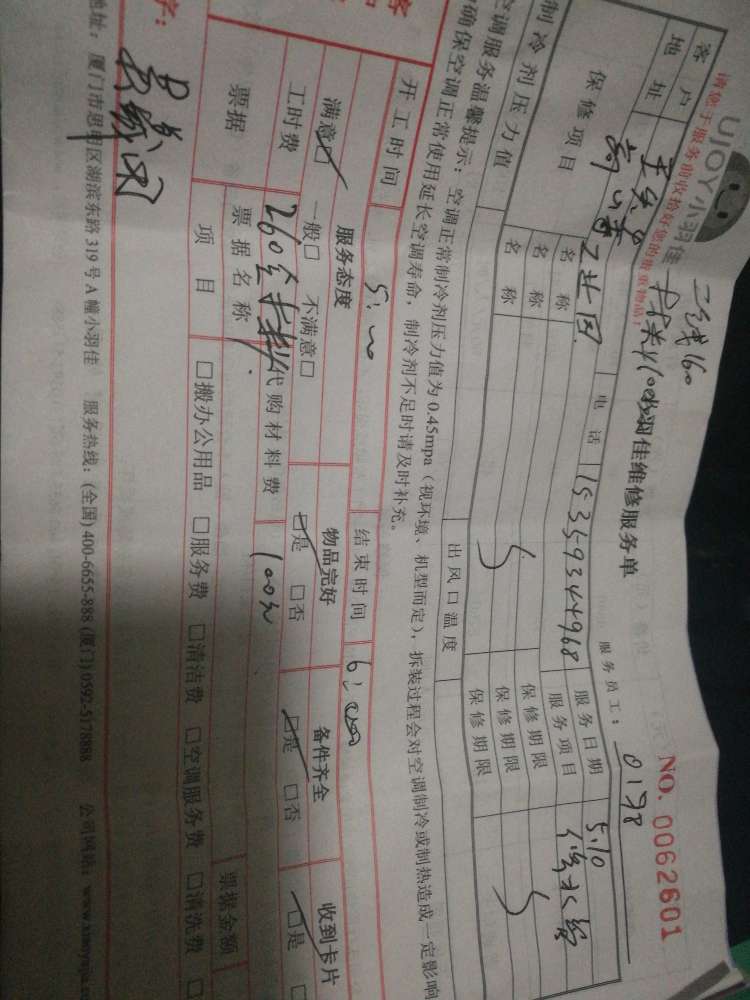 UJOY小羽佳
羽佳维修服务单
NO. 0062601
请您于服务前收拾好您的贵重物品!
二线160
服务员工: 0178
客户
电话 15359344968
服务日期 5.10
地址
服务项目 修水管
保修项目 名称 保修期限
名称 保修期限
名称 保修期限
制冷剂压力值
出风口温度
空调服务温馨提示: 空调正常制冷剂压力值为0.45mpa (视环境、机型而定), 拆装过程会对空调制冷或制热造成一定影响
确保空调正常使用延长空调寿命, 制冷剂不足时请及时补充。
开工时间 5:00
结束时间 6:00
服务态度 物品完好 备件齐全 收到卡片
满意□ 一般□ 不满意□ □是 □否 □是 □否 □是
工时费 260 代购材料费 100元
票据 票据名称 票据金额
项目 □搬办公用品 □服务费 □清洁费 □空调服务费 □清洗费
字:
地址: 厦门市思明区湖滨东路319号A幢小羽佳 服务热线: (全国) 400-6655-888 (厦门) 0592-5178888 公司网站: